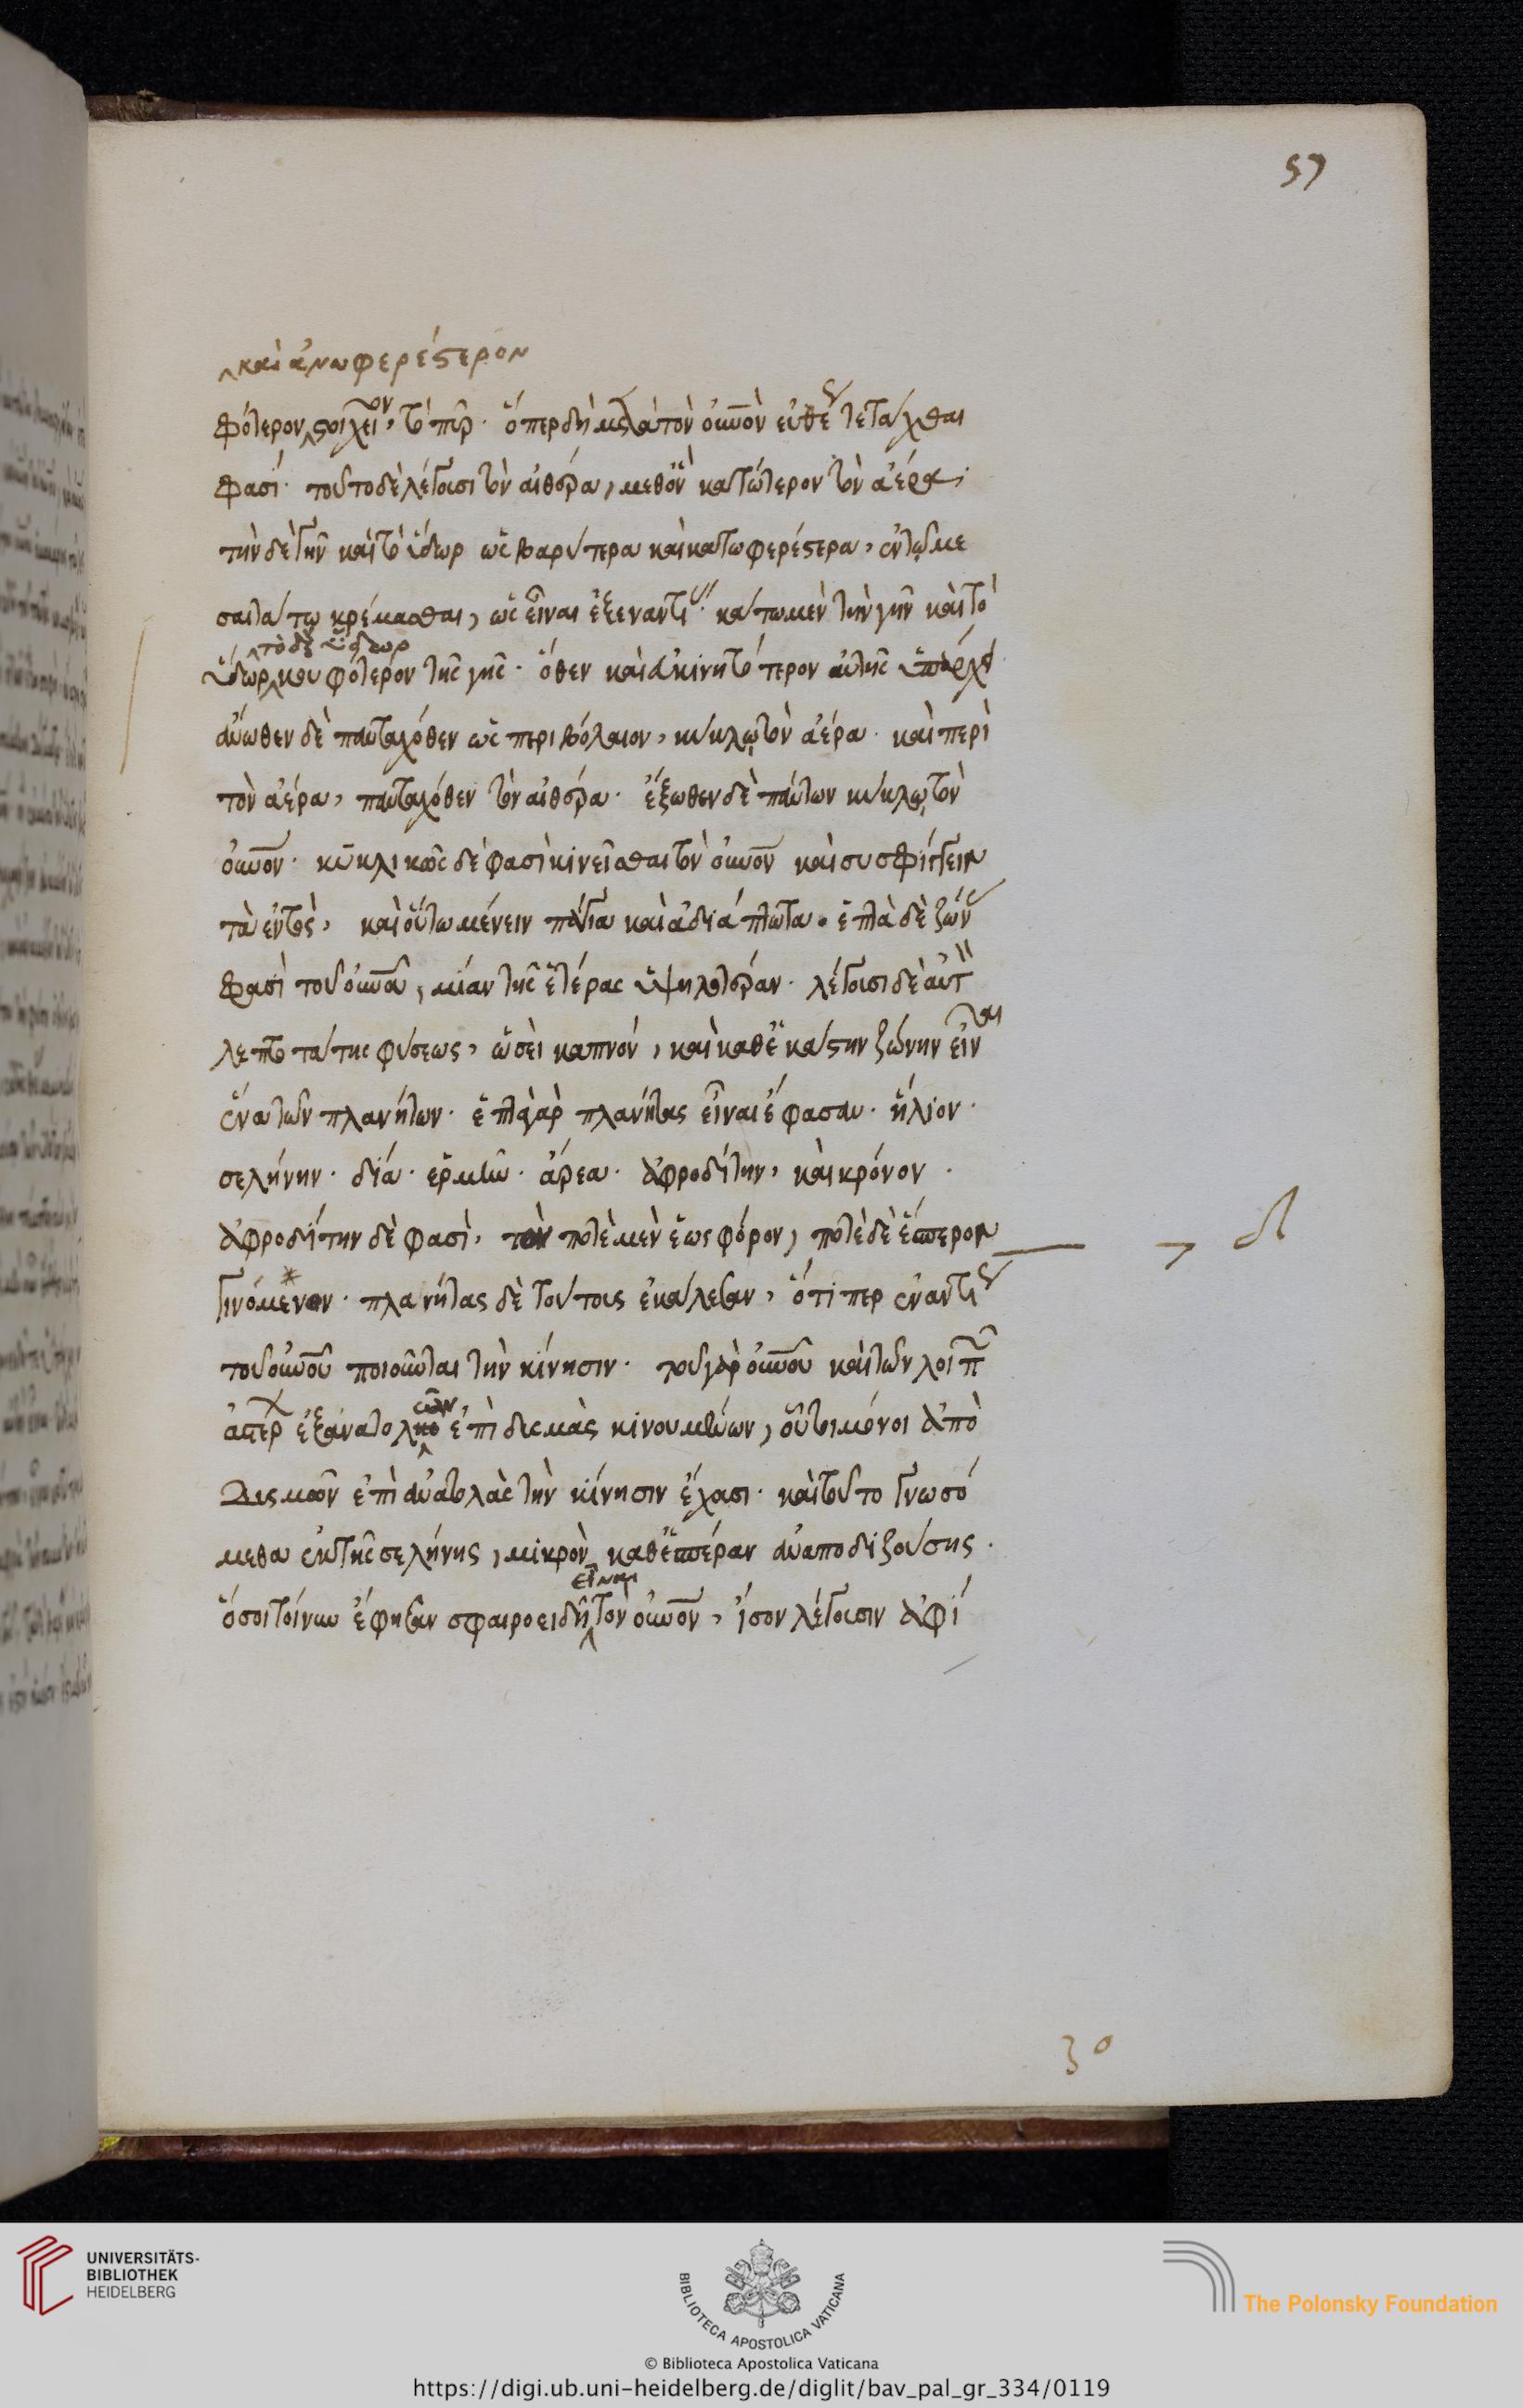 57
καὶ ἀνωφερέστερον
φότερον στοιχεῖον, τὸ πῦρ· ὅπερ δὴ μετὰ τὸν οὐνὸν εὐθὺς τετάχθαι
φασί· τοῦτο δὲ λέγουσι τὸν αἰθέρα, μεθ' ὃν κατώτερον τὸν ἀέρα·
τὴν δὲ γῆν καὶ τὸ ὕδωρ ὡς βαρύτερα καὶ κατωφερέστερα, ἐν τῷ με
σαιτάτῳ κρέμασθαι, ὡς εἶναι ἐξεναντίας· κάτω μὲν τὴν γῆν καὶ τὸ
τὸ δὲ ὕδωρ
ὕδωρ κουφότερον τῆς γῆς· ὅθεν καὶ ἀκινητότερον αὐτῆς ὑπάρχει
ἄνωθεν δὲ πανταχόθεν ὡς περιβόλαιον, κύκλῳ τὸν ἀέρα· καὶ περὶ
τὸν ἀέρα, πανταχόθεν τὸν αἰθέρα· ἔξωθεν δὲ πάντων κύκλῳ τὸν
οὐνόν· κυκλικῶς δέ φασὶ κινεῖσθαι τὸν οὐνὸν καὶ συσφίγγειν
τὰ ἐντὸς, καὶ οὕτω μένειν πάντα καὶ ἀδιάπτωτα. ἑπτὰ δὲ ζών
φασὶ τοῦ οὐνοῦ, μίαν τῆς ἑτέρας ὑψηλοτέραν· λέγουσι δὲ αὐτ
λεπτοτάτης φύσεως, ὡσεὶ καπνόν, καὶ καθ' ἑκάστην ζώνην εἶναι
ἕνα τῶν πλανήτων· ἑπτὰ γὰρ πλανήτας εἶναι ἔφασαν· ἥλιον·
σελήνην· δία· ἑρμῆν· ἄρεα· ἀφροδίτην, καὶ κρόνον·
ἀφροδίτην δὲ φασὶ, τὸν ποτὲ μὲν ἑωςφόρον, ποτὲ δὲ ἕσπερον
γινόμενον· πλανήτας δὲ τούτους ἐκάλεσαν, ὅτι περ ἐναντί
τοῦ οὐνοῦ ποιοῦνται τὴν κίνησιν· τοῦ γὰρ οὐνοῦ καὶ τῶν λοιπ
ἀστέρ ἐξ ἀνατολῶν ἐπὶ δυσμὰς κινουμένων, οὗτοι μόνοι ἀπὸ
δυσμῶν ἐπὶ ἀνατολὰς τὴν κίνησιν ἔχουσι· καὶ τοῦτο γνωσό
μεθα ἐκ τῆς σελήνης, μικρὸν καθ' ἑσπέραν ἀναποδιζούσης·
εἶναι
ὅσοι τοίνυν ἔφησαν σφαιροειδῆ τὸν οὐνὸν, ἴσον λέγουσιν ἀφί
30
UNIVERSITÄTS-
BIBLIOTHEK
HEIDELBERG
BIBLIOTECA APOSTOLICA VATICANA
The Polonsky Foundation
© Biblioteca Apostolica Vaticana
https://digi.ub.uni-heidelberg.de/diglit/bav_pal_gr_334/0119